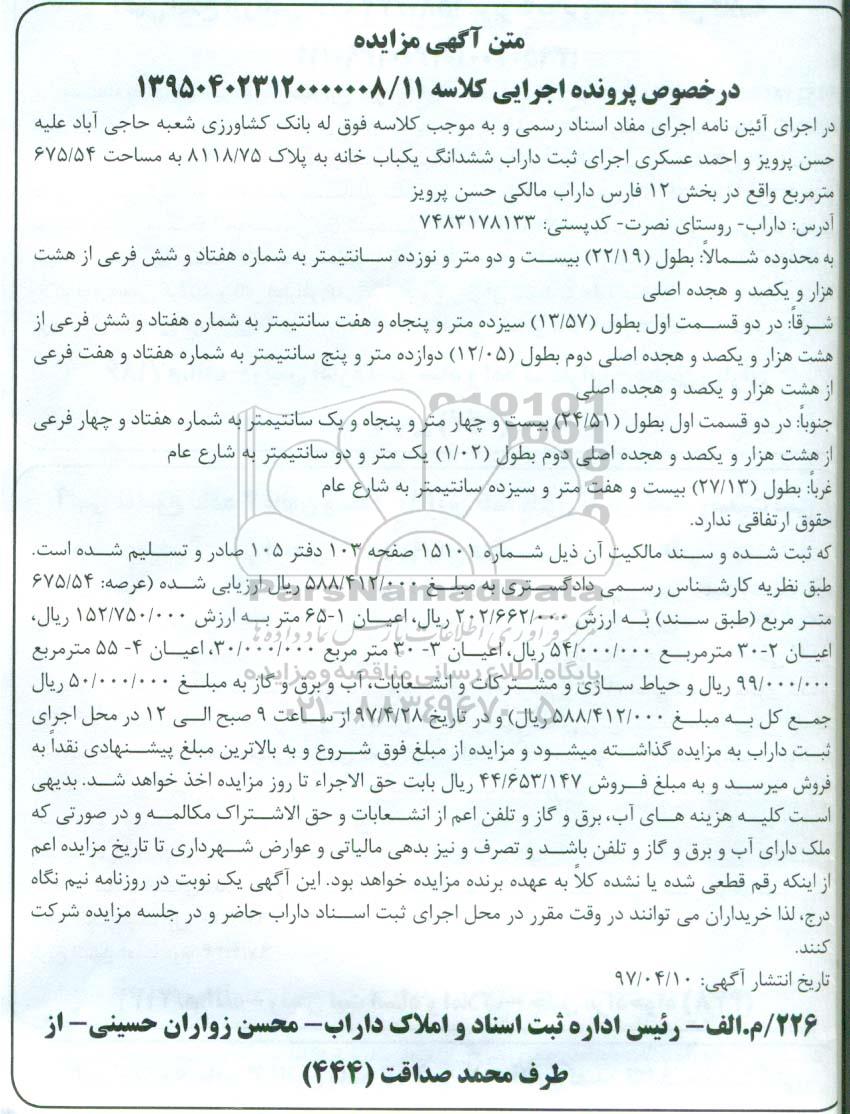 متن آگهی مزایده
درخصوص پرونده اجرایی کلاسه ۱۳۹۵۰۴۰۲۳۱۲۰۰۰۰۰۰۸/۱۱
در اجرای آئین نامه اجرای مفاد اسناد رسمی و به موجب کلاسه فوق له بانک کشاورزی شعبه حاجی آباد علیه
حسن پرویز و احمد عسکری اجرای ثبت داراب ششدانگ یکباب خانه به پلاک ۸۱۱۸/۷۵ به مساحت ۶۷۵/۵۴
مترمربع واقع در بخش ۱۲ فارس داراب مالکی حسن پرویز
آدرس: داراب- روستای نصرت- کدپستی: ۷۴۸۳۱۷۸۱۳۳
به محدوده شمالاً: بطول (۲۲/۱۹) بیست و دو متر و نوزده سانتیمتر به شماره هفتاد و شش فرعی از هشت
هزار و یکصد و هجده اصلی
شرقاً: در دو قسمت اول بطول (۱۳/۵۷) سیزده متر و پنجاه و هفت سانتیمتر به شماره هفتاد و شش فرعی از
هشت هزار و یکصد و هجده اصلی دوم بطول (۱۲/۰۵) دوازده متر و پنج سانتیمتر به شماره هفتاد و هفت فرعی
از هشت هزار و یکصد و هجده اصلی
جنوباً: در دو قسمت اول بطول (۲۴/۵۱) بیست و چهار متر و پنجاه و یک سانتیمتر به شماره هفتاد و چهار فرعی
از هشت هزار و یکصد و هجده اصلی دوم بطول (۱/۰۲) یک متر و دو سانتیمتر به شارع عام
غرباً: بطول (۲۷/۱۳) بیست و هفت متر و سیزده سانتیمتر به شارع عام
حقوق ارتفاقی ندارد.
که ثبت شده و سند مالکیت آن ذیل شماره ۱۵۱۰۱ صفحه ۱۰۳ دفتر ۱۰۵ صادر و تسلیم شده است.
طبق نظریه کارشناس رسمی دادگستری به مبلغ ۵۸۸/۴۱۲/۰۰۰ ریال ارزیابی شده (عرصه: ۶۷۵/۵۴
متر مربع (طبق سند) به ارزش ۲۰۲/۶۶۲/۰۰۰ ریال، اعیان ۱-۶۵ متر به ارزش ۱۵۲/۷۵۰/۰۰۰ ریال،
اعیان ۲-۳۰ مترمربع ۵۴/۰۰۰/۰۰۰ ریال، اعیان ۳- ۳۰ متر مربع ۳۰/۰۰۰/۰۰۰، اعیان ۴- ۵۵ مترمربع
۹۹/۰۰۰/۰۰۰ ریال و حیاط سازی و مشترکات و انشعابات، آب و برق و گاز به مبلغ ۵۰/۰۰۰/۰۰۰ ریال
جمع کل به مبلغ ۵۸۸/۴۱۲/۰۰۰ ریال) و در تاریخ ۹۷/۴/۲۸ از ساعت ۹ صبح الی ۱۲ در محل اجرای
ثبت داراب به مزایده گذاشته میشود و مزایده از مبلغ فوق شروع و به بالاترین مبلغ پیشنهادی نقداً به
فروش میرسد و به مبلغ فروش ۴۴/۶۵۳/۱۴۷ ریال بابت حق الاجراء تا روز مزایده اخذ خواهد شد. بدیهی
است کلیه هزینه های آب، برق و گاز و تلفن اعم از انشعابات و حق الاشتراک مکالمه و در صورتی که
ملک دارای آب و برق و گاز و تلفن باشد و تصرف و نیز بدهی مالیاتی و عوارض شهرداری تا تاریخ مزایده اعم
از اینکه رقم قطعی شده یا نشده کلاً به عهده برنده مزایده خواهد بود. این آگهی یک نوبت در روزنامه نیم نگاه
درج، لذا خریداران می توانند در وقت مقرر در محل اجرای ثبت اسناد داراب حاضر و در جلسه مزایده شرکت
کنند.
تاریخ انتشار آگهی: ۹۷/۰۴/۱۰
۲۲۶/م.الف- رئیس اداره ثبت اسناد و املاک داراب- محسن زواران حسینی- از
طرف محمد صداقت (۴۴۴)
ParsNamadData
مرکز فرآوری اطلاعات پارس نماد داده ها
پایگاه اطلاع رسانی مناقصه و مزایده
۰۲۱-۸۸۳۴۹۶۷۰-۵